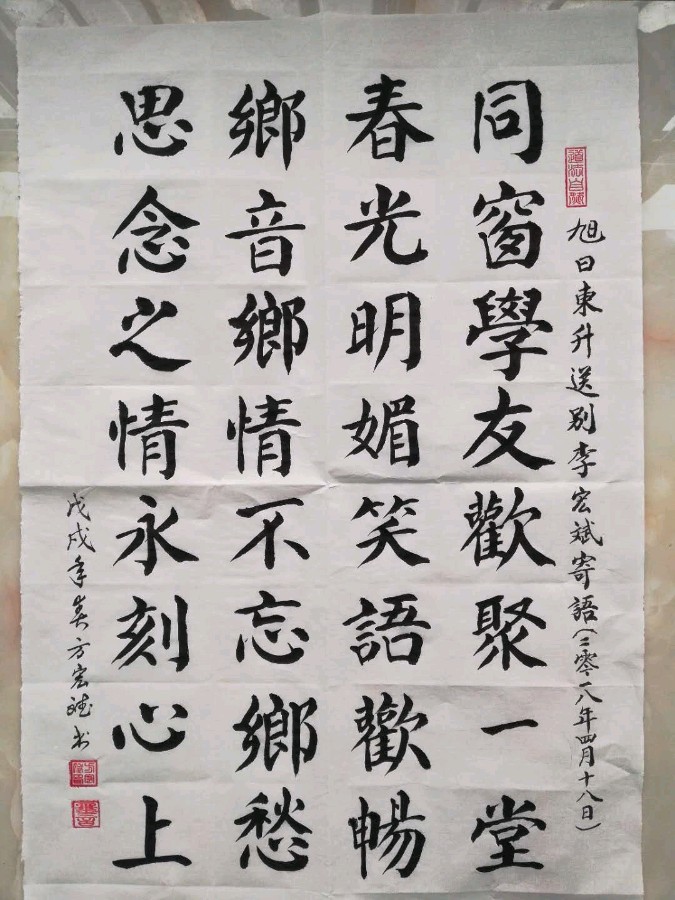 道法自然
旭日東升送别李宏斌寄語(二零一八年四月十八日)
同窗學友歡聚一堂
春光明媚笑語歡暢
鄉音鄉情不忘鄉愁
思念之情永刻心上
戊戌年春方宏斌书